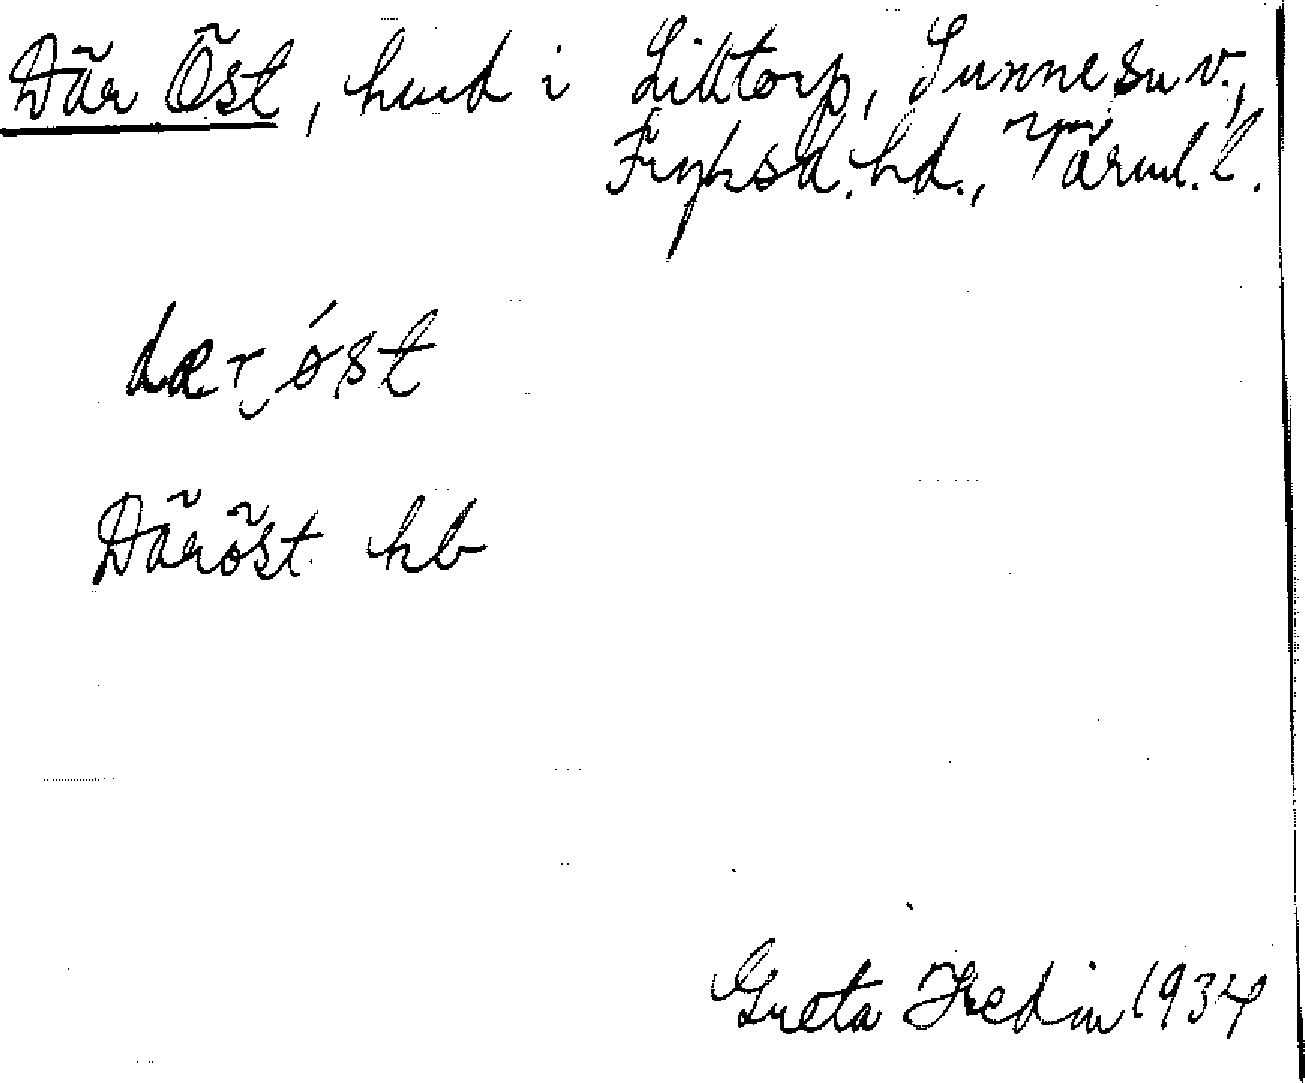 Där Öst, hmd i Lilltorp, Sunne sn v.,
Fryksd. hd., Värml. l.
dær øst
Däröst kb
Greta Hedin 1934